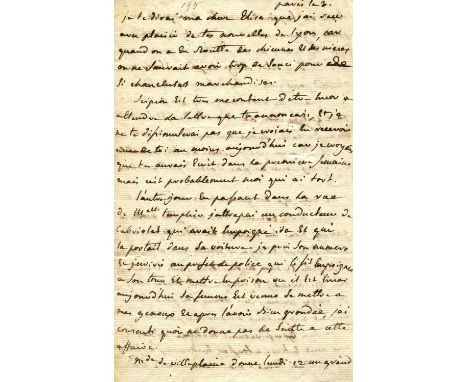 195 paris le 2.
je te dirai ma cher Elisa que j'ai reçu
avec plaisir de tes nouvelles de Lyon, car
quand on a en route des chevaux et des nièces
on ne sauroit avoir trop de souci pour de
si chancheuses marchandises.
Scipion est tres mecontent d'être encor a
attendre la lettre que tu annoncais, et je
ne te dissimulerai pas que je croiais en recevoir
une de toi au moins aujourd'hui car je croyais
que tu aurais ecrit dans la premiere semaine
mais c'est probablement moi qui ai tort.
l'autre jour en passant dans la rue
de M jattrapai un conducteur de
cabriolet qui avait empoigné da et qui
la portait dans sa voiture. je pris son numero
et j'ecrivis au prefet de police qui le fit empoigner
a son tour et mettre en prison ou il est encor
aujourd'hui sa femme est venue se mettre a
mes genoux et apres l'avoir bien grondée, j'ai
consenti qu'on ne donne pas de suite a cette
affaire.
Mde de villeplaine donne lundi 12 un grand